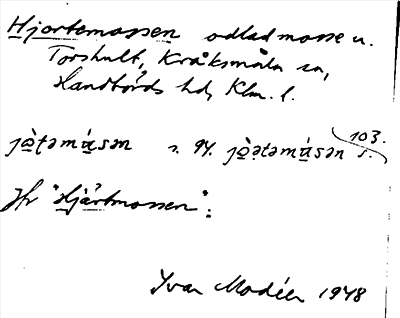 Hjortemossen odlad mosse u.
Torshult, Kråksmåla sn,
Handbörds hd, Klm. l.
103.
jò̱ṭəmá̱sən s. 94. jò̱ətəmá̱sən s.
Jfr "Hjärtmossen":
Ivar Modéer 1948